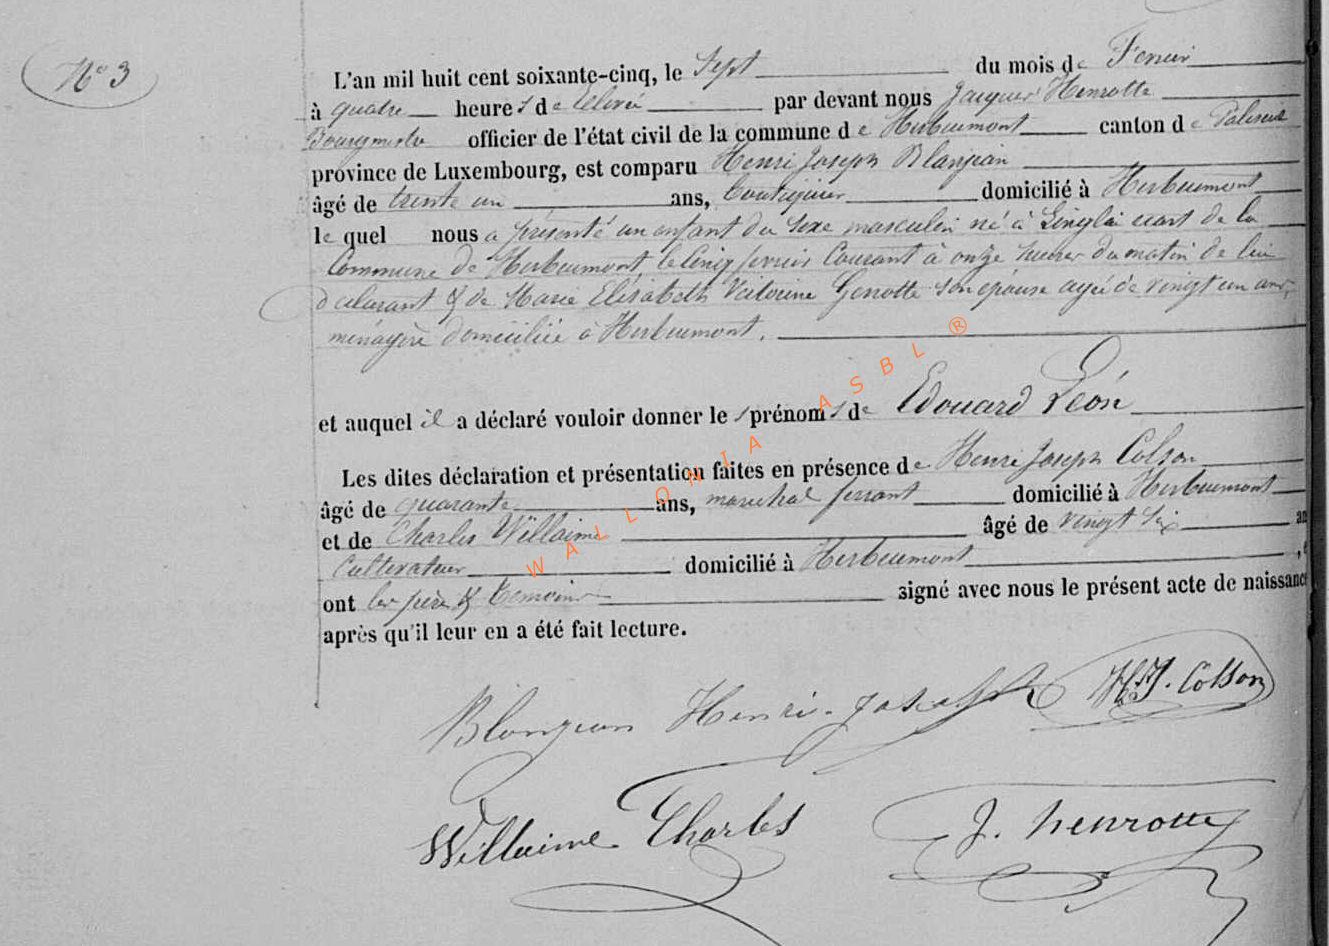 N° 3
L'an mil huit cent soixante-cinq, le Sept du mois de Fevrier
à quatre heures de relevée par devant nous Jacques Henrotte
Bourgmestre officier de l'état civil de la commune de Herbeumont canton de Paliseul
province de Luxembourg, est comparu Henri Joseph Blanjean
âgé de trente un ans, boutiquier domicilié à Herbeumont
lequel nous a présenté un enfant du sexe masculin né à écart de la
Commune de Herbeumont, le Cinq fevrier Courant à onze heures du matin de lui
déclarant & de Marie Elisabeth Victorine Genotte son épouse agée de vingt un ans,
ménagère domiciliée à Herbeumont.
et auquel il a déclaré vouloir donner les prénoms de Edouard Léon
Les dites déclaration et présentation faites en présence de Henri Joseph Colson
âgé de quarante ans, marechal ferrant domicilié à Herbeumont
et de Charles Willaime âgé de vingt six an
Cultivateur domicilié à Herbeumont
ont les père & temoins signé avec nous le présent acte de naissance
après qu'il leur en a été fait lecture.
Blanjean Henri-Joseph H.J. Colson
Willaime Charles J. henrotte
WALLONIA ASBL ®